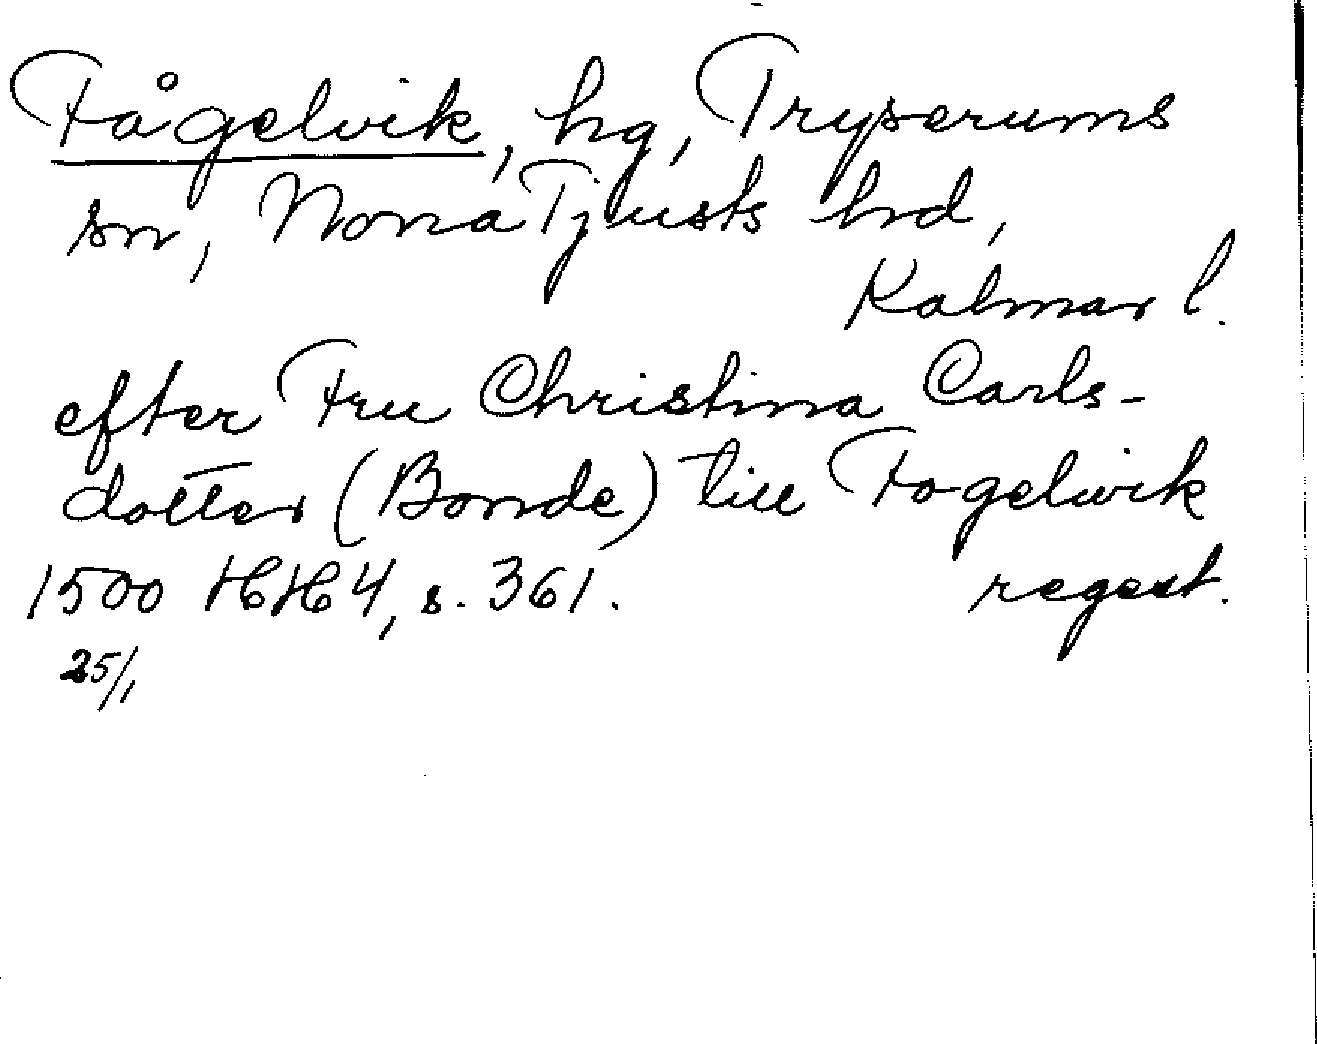 Fågelvik, hg, Tryserums
sn, Norra Tjusts hd,
Kalmar l.
efter Fru Christina Carls-
dotter (Bonde) till Fogelwik
1500 HH 4, s. 361. regest.
25/1